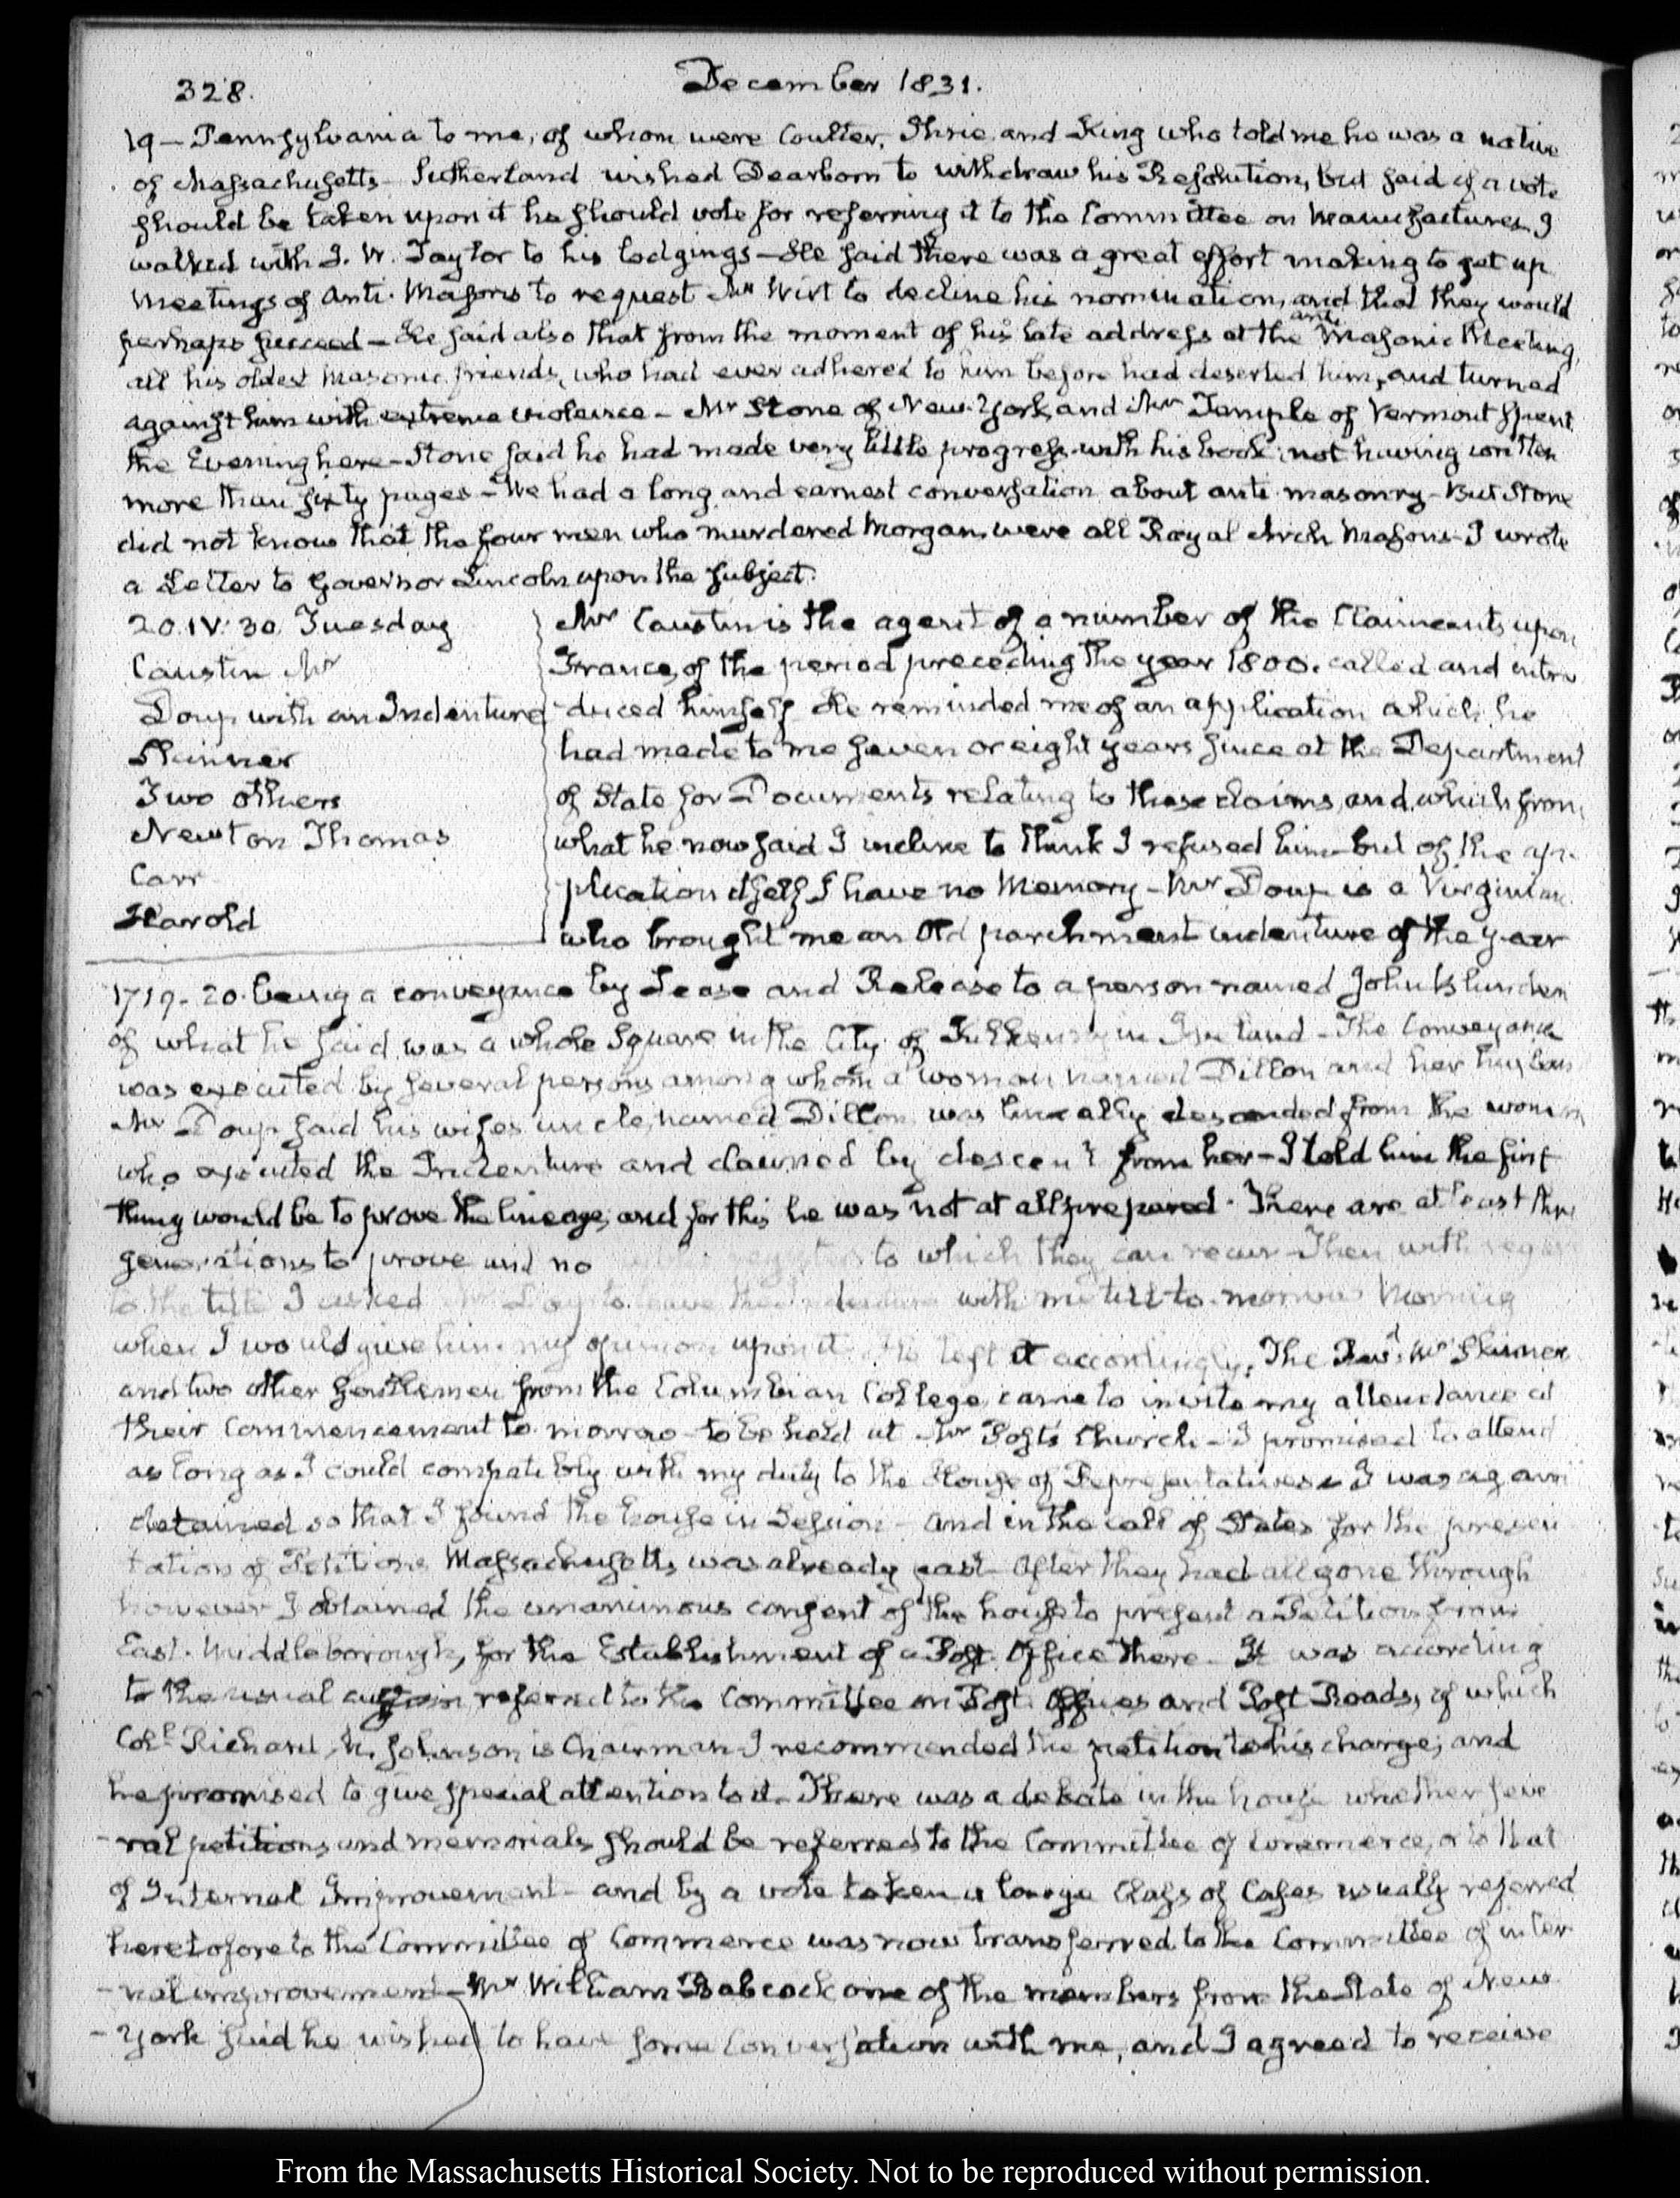 328.
December 1831.
19 — Pennsylvania to me, of whom were Coulter, Ihrie, and King who told me he was a native
of Massachusetts — Sutherland wished Dearborn to withdraw his Resolution, but said if a vote
should be taken upon it he should vote for referring it to the Committee on Manufactures. I
walked with J. W. Taylor to his lodgings — He said there was a great effort making to get up
meetings of Anti-Masons to request Mr Wirt to decline his nomination, and that they would
perhaps succeed — He said also that from the moment of his late address at the anti Masonic Meeting,
all his oldest Masonic friends, who had ever adhered to him before had deserted him, and turned
against him with extreme violence — Mr Stone of New-York, and Mr Temple of Vermont spent
the Evening here — Stone said he had made very little progress with his book, not having written
more than sixty pages — We had a long and earnest conversation about anti-masonry — But Stone
did not know that the four men who murdered Morgan, were all Royal Arch Masons — I wrote
a Letter to Governor Lincoln upon the subject.
20. IV: 30. Tuesday
Causten Mr
Doup with an Indenture
Skinner
Two others
Newton Thomas
Carr
Harold
Mr Causten is the agent of a number of the Claimants upon
France, of the period preceding the year 1800. called and intro
-duced himself He reminded me of an application which he
had made to me seven or eight years since at the Department
of State for Documents relating to those claims, and which from
what he now said I incline to think I refused him — but of the ap-
plication itself I have no Memory — Mr Doup is a Virginian
who brought me an Old parchment indenture of the year
1719-20. being a conveyance by Lease and Release to a person named John
of what he said was a whole Square in the City of Kilkenny in Ireland — The Conveyance
was executed by several persons among whom a woman named Dillon and her husban
Mr Doup said his wifes uncle, named Dillon, was lineally descended from the woman
who executed the Indenture and claimed by descent from her — I told him the first
thing would be to prove the lineage, and for this he was not at all prepared. There are at least three
generations to prove and no to which they can recur — Then with regard
to the title I asked Mr to leave the Indenture with me till to-morrow Morning
when I would give him my opinion upon it. He left it accordingly. The Revd. Mr Skinner
and two other Gentlemen from the Columbian College, came to invite my attendance at
their Commencement to-morrow — to be held at Mr Post's Church — I promised to attend
as long as I could compatibly with my duty to the House of Representatives — I was again
detained so that I found the house in Session — and in the call of States for the presen
tation of Petitions Massachusetts was already past — After they had all gone through
however I obtained the unanimous consent of the house to present a Petition from
East-Middleborough, for the Establishment of a Post-Office there — It was according
to the usual custom referred to the Committee on Post-Offices and Post Roads, of which
Coll Richard M. Johnson is Chairman I recommended the petition to his charge; and
he promised to give special attention to it — There was a debate in the house whether seve
-ral petitions and memorials should be referred to the Committee of Commerce, or to that
of Internal Improvement — and by a vote taken a large Class of Cases usually referred
heretofore to the Committee of Commerce was now transferred to the Committee of inter
-nal improvement — Mr William Babcock one of the members from the State of New
-York said he wished to have some Conversation with me, and I agreed to receive
From the Massachusetts Historical Society. Not to be reproduced without permission.